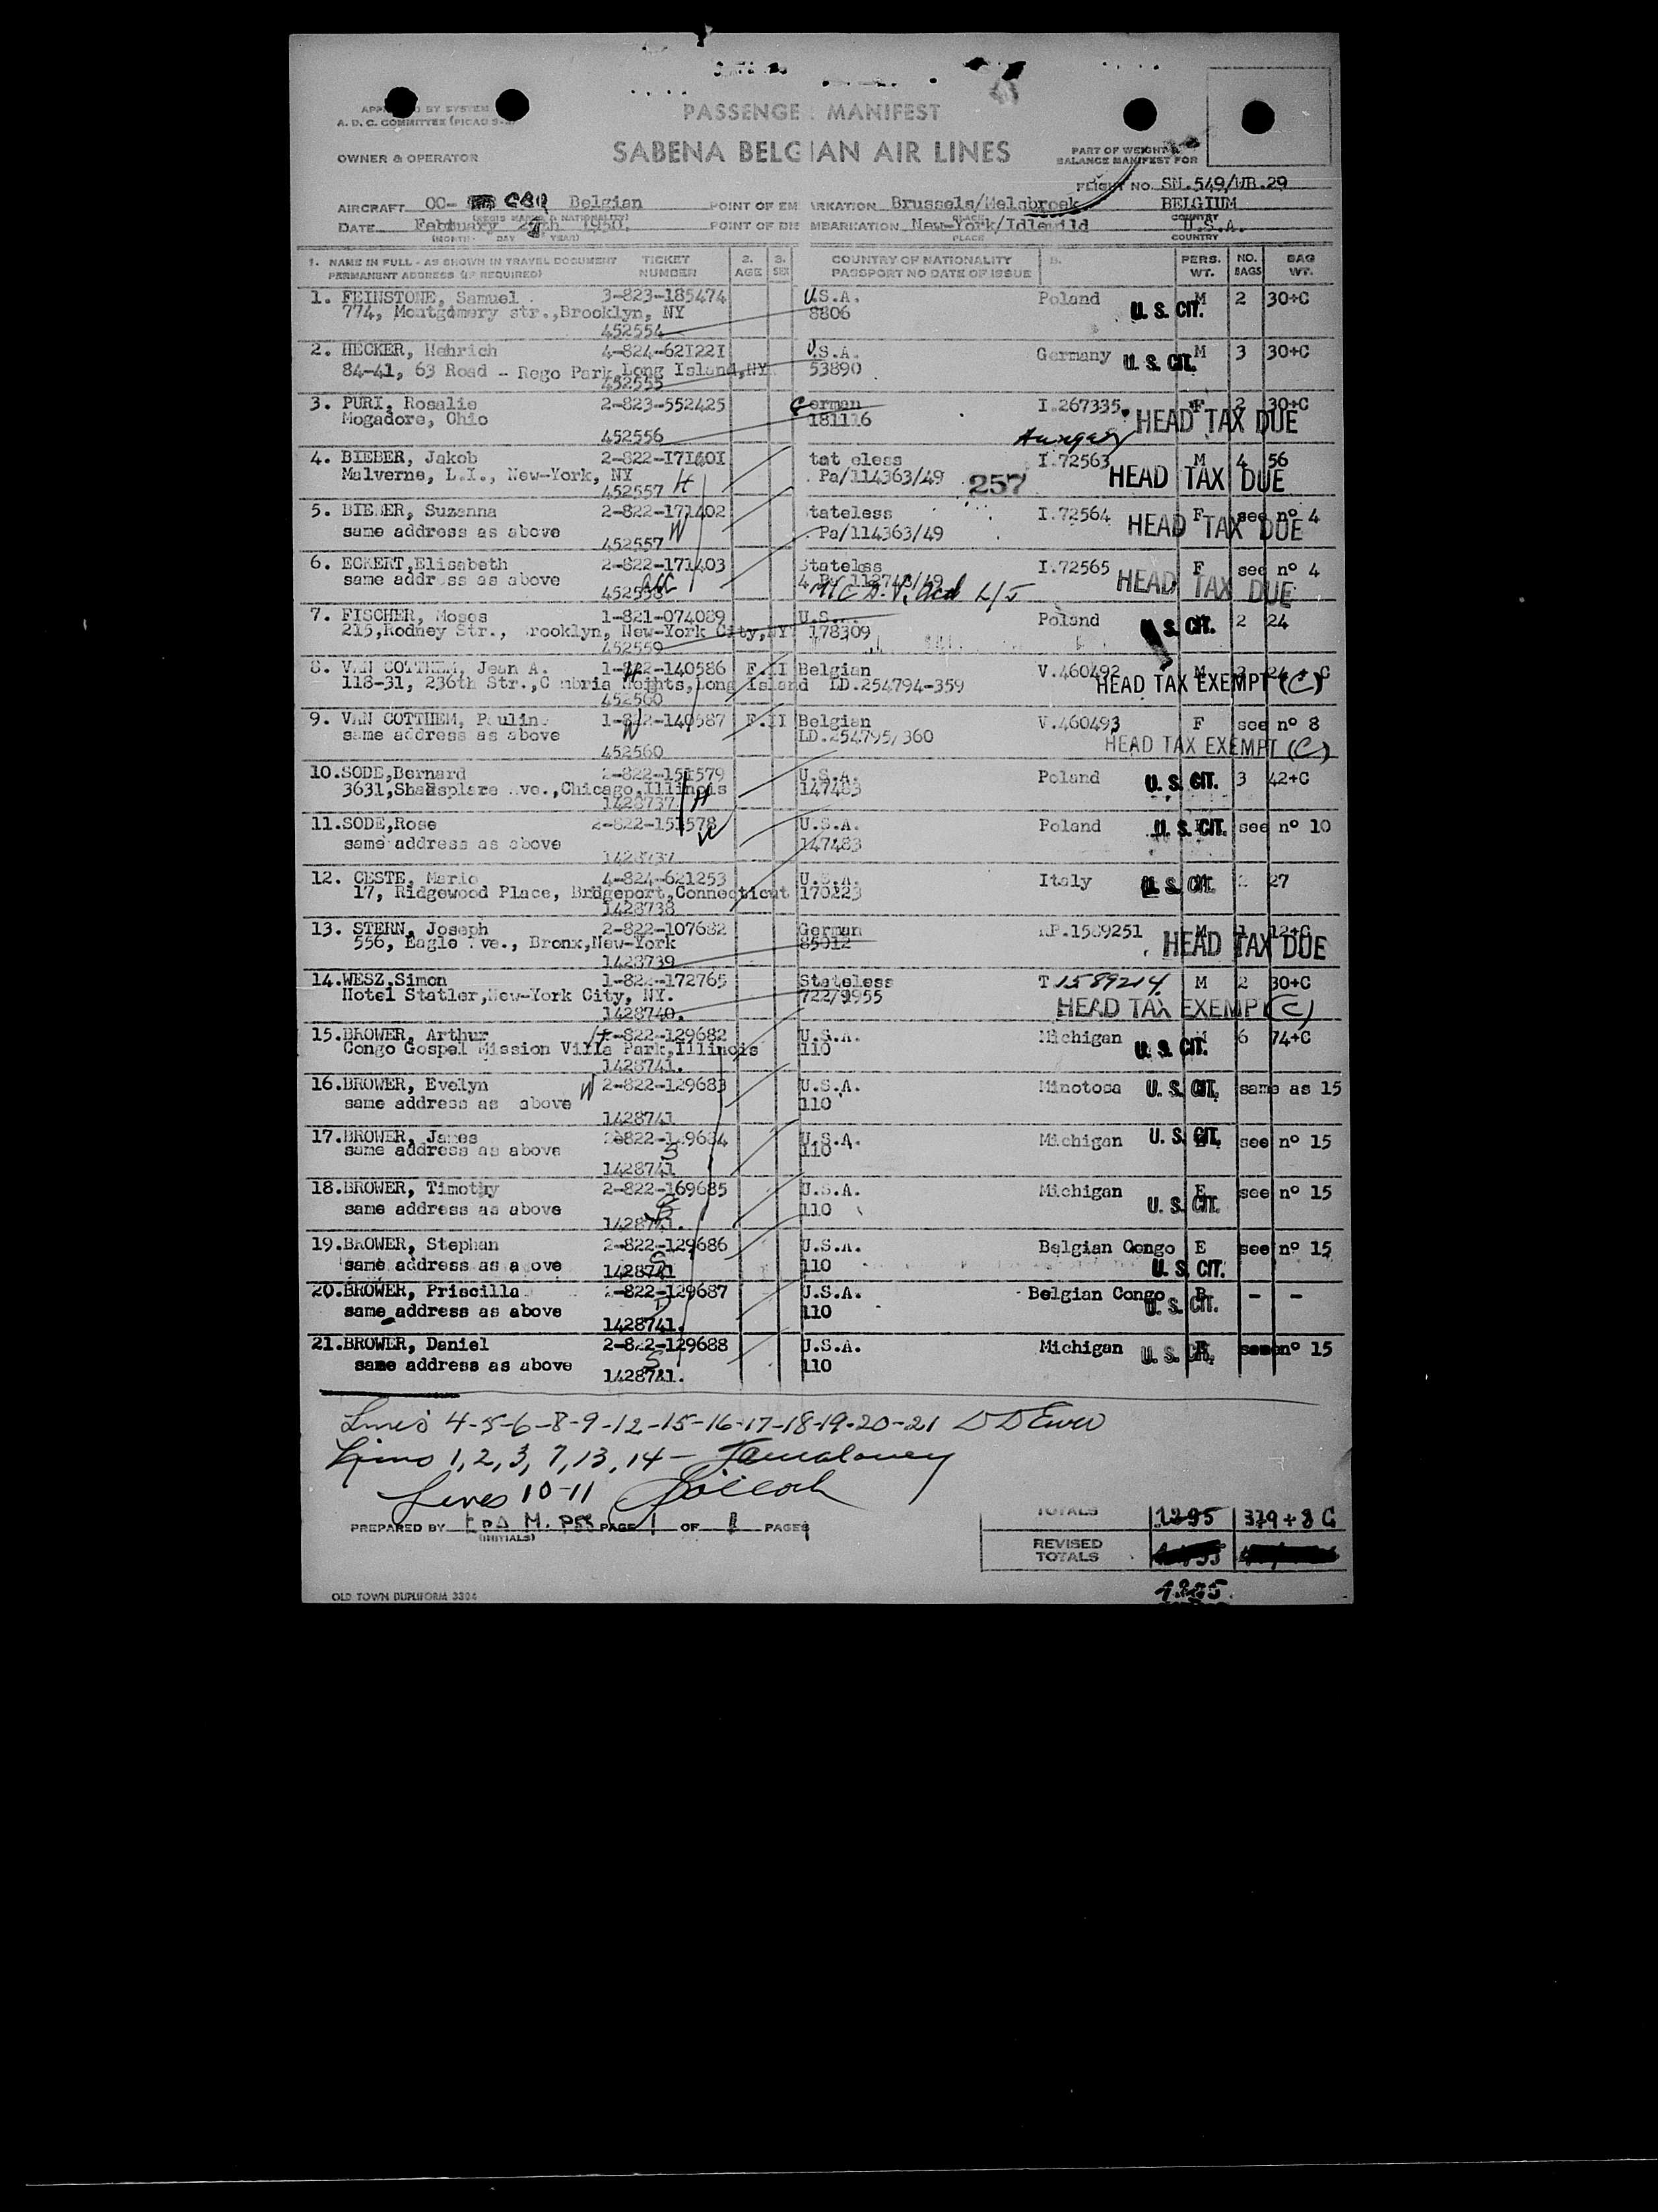 A. D. C. COMMITTEE
PASSENGE MANIFEST
SABENA BELGIAN AIR LINES
OWNER & OPERATOR
PART OF WEIGHT &
BALANCE MANIFEST FOR
FLIGHT NO. SN.549/WB.29
AIRCRAFT OO- Belgian POINT OF EMBARKATION Brussels/Melsbroek BELGIUM
(REGIS MARKS & NATIONALITY) PLACE COUNTRY
DATE February 1950. POINT OF DISEMBARKATION New-York/Idlewild U.S.A.
(MONTH DAY YEAR) PLACE COUNTRY
1. NAME IN FULL - AS SHOWN IN TRAVEL DOCUMENT TICKET 2. 3. COUNTRY OF NATIONALITY PERS. NO. BAG
PERMANENT ADDRESS (IF REQUIRED) NUMBER AGE SEX PASSPORT NO DATE OF ISSUE WT. BAGS WT.
1. FEINSTONE, Samuel 3-823-185474 U.S.A. Poland M 2 30+C
774, Montgomery str.,Brooklyn, NY 8806 U. S. CIT.
452554
2. HECKER, Hehrich 4-824-621221 U.S.A. Germany U. S. CIT. M 3 30+C
84-41, 63 Road - Rego Park,Long Island,NY 53890
452555
3. PURI, Rosalie 2-823-552425 German I.267335 F 2 30+C
Mogadore, Ohio 181116 HEAD TAX DUE
452556 Hungary
4. BIEBER, Jakob 2-822-171401 tat eless I.72563 M 4 56
Malverne, L.I., New-York, NY Pa/114363/49 257 HEAD TAX DUE
452557 H
5. BIEBER, Suzanna 2-822-171402 tateless I.72564 F see nº 4
same address as above W Pa/114363/49 HEAD TAX DUE
452557
6. ECKERT,Elisabeth 2-822-171403 Stateless I.72565 F see nº 4
same address as above HEAD TAX DUE
7. FISCHER, Moses 1-821-074089 U.S. Poland 2 24
215,Rodney Str., rooklyn, New-York City,NY 178309 S. CIT.
452559
8. VAN COTTHEM, Jean A. 1-822-140586 F.II Belgian V.460492 M
118-31, 236th Str.,C mbria Heights,Long Island LD.254794-359 HEAD TAX EXEMPT (C)
452560
9. VAN COTTHEM, Paulin 1-822-140587 F.II Belgian V.460493 F see nº 8
same address as above W LD.254795/360 HEAD TAX EXEMPT (C)
452560
10.SODE,Bernard 2-822-151579 U.S.A. Poland U. S. CIT. 3 42+C
3631,Shaksplare ve.,Chicago,Illinois 147483
1428737 H
11.SODE,Rose 2-822-151578 U.S.A. Poland U. S. CIT. see nº 10
same address as above W 147483
1428737
12. CESTE, Mario 4-824-621253 U.S.A. Italy U. S. CIT. 27
17, Ridgewood Place, Bridgeport,Connecticut 170223
1428738
13. STERN, Joseph 2-822-107682 German RP.1589251 M 1 12+C
556, Eagle ve., Bronx,New-York 85012 HEAD TAX DUE
1428739
14.WESZ,Simon 1-822-172765 Stateless T 1589214. M 2 30+C
Hotel Statler,New-York City, NY. 722/9955 HEAD TAX EXEMPT (C)
1428740.
15.BROWER, Arthur H 2-822-129682 U.S.A. Michigan 6 74+C
Congo Gospel Mission Villa Park,Illinois 110 U. S. CIT.
1428741.
16.BROWER, Evelyn W 2-822-129683 U.S.A. Minotosa U. S. CIT. same as 15
same address as above 110
1428741
17.BROWER, James U.S.A. Michigan U. S. CIT. see nº 15
same address as above S 110
1428741
18.BROWER, Timothy 2-822-169685 U.S.A. Michigan see nº 15
same address as above S 110 U. S. CIT.
1428741.
19.BROWER, Stephan 2-822-129686 U.S.A. Belgian Congo E see nº 15
same address as a ove S 110 U. S. CIT.
1428741
20.BROWER, Priscilla -822-129687 U.S.A. Belgian Congo - -
same address as above D 110 U. S. CIT.
1428741.
21.BROWER, Daniel 2-822-129688 U.S.A. Michigan U. S. CIT. nº 15
same address as above S 110
1428741.
Lines 4-5-6-8-9-12-15-16-17-18-19-20-21
Lines 1, 2, 3, 7, 13, 14 -
Lines 10-11
PREPARED BY PAGE 1 OF PAGES
(INITIALS)
TOTALS 1295 379+8 C
REVISED
TOTALS
OLD TOWN DUPLIFORM 3304